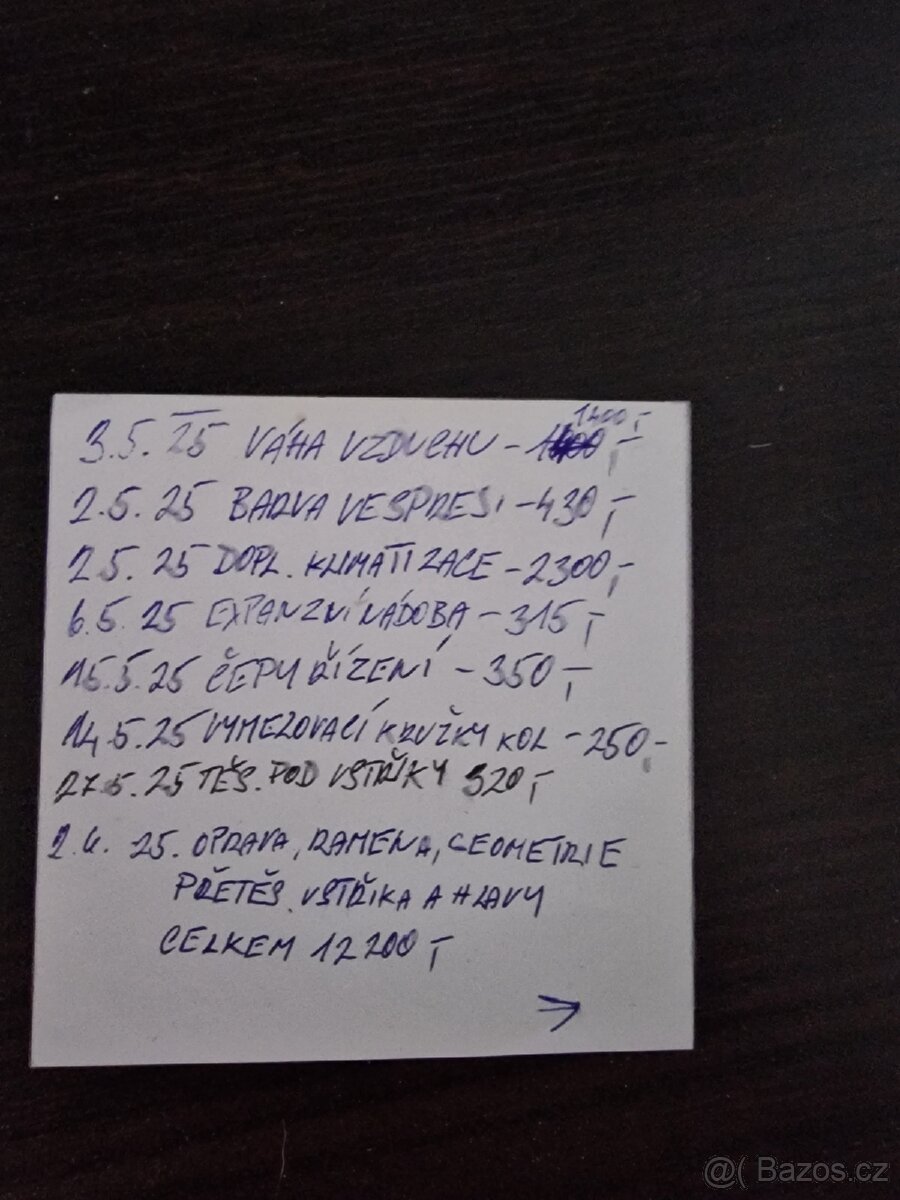 1400,-
3.5.25 VÁHA VZDUCHU - ,-
2.5.25 BARVA VE SPREJI - 430,-
2.5.25 DOPL. KLIMATIZACE - 2300,-
6.5.25 EXPANZNÍ NÁDOBA - 315,-
15.5.25 ČEPY ŘÍZENÍ - 350,-
14.5.25 VYMEZOVACÍ KRUŽKY KOL - 250,-
27.5.25 TĚS. POD VSTŘIKY 320,-
25. OPRAVA, RAMENA, GEOMETRIE
PŘETĚS. VSTŘIKA A HLAVY
CELKEM 12200,-
→
@( Bazos.cz